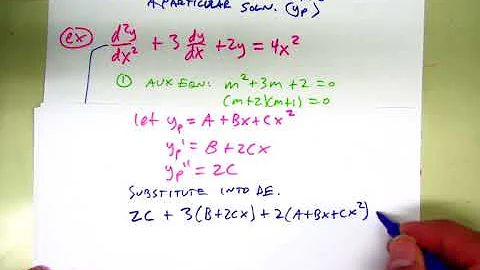 A PARTICULAR SOLN. (yp)
ex d²y/dx² + 3 dy/dx + 2y = 4x²
① AUX EQN: m² + 3m + 2 = 0
(m+2)(m+1) = 0
let yp = A + Bx + Cx²
yp' = B + 2Cx
yp'' = 2C
SUBSTITUTE INTO DE.
2C + 3(B+2Cx) + 2(A+Bx+Cx²)